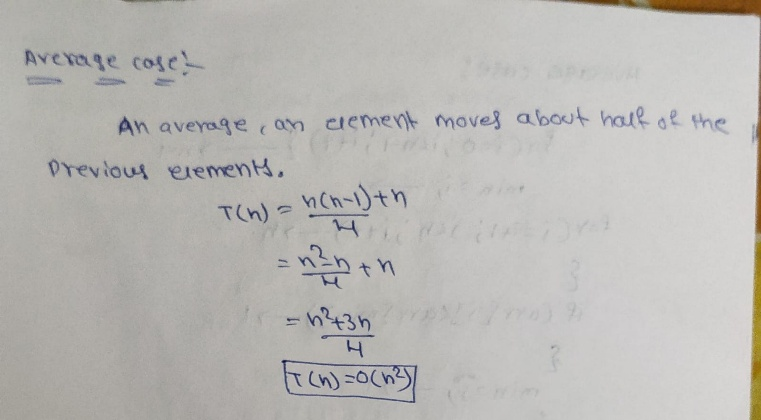 Average case:-
An average, an element moves about half of the
previous elements.
T(n) = n(n-1)/4 + n
= n²-n/4 + n
= n²+3n/4
T(n) = O(n²)